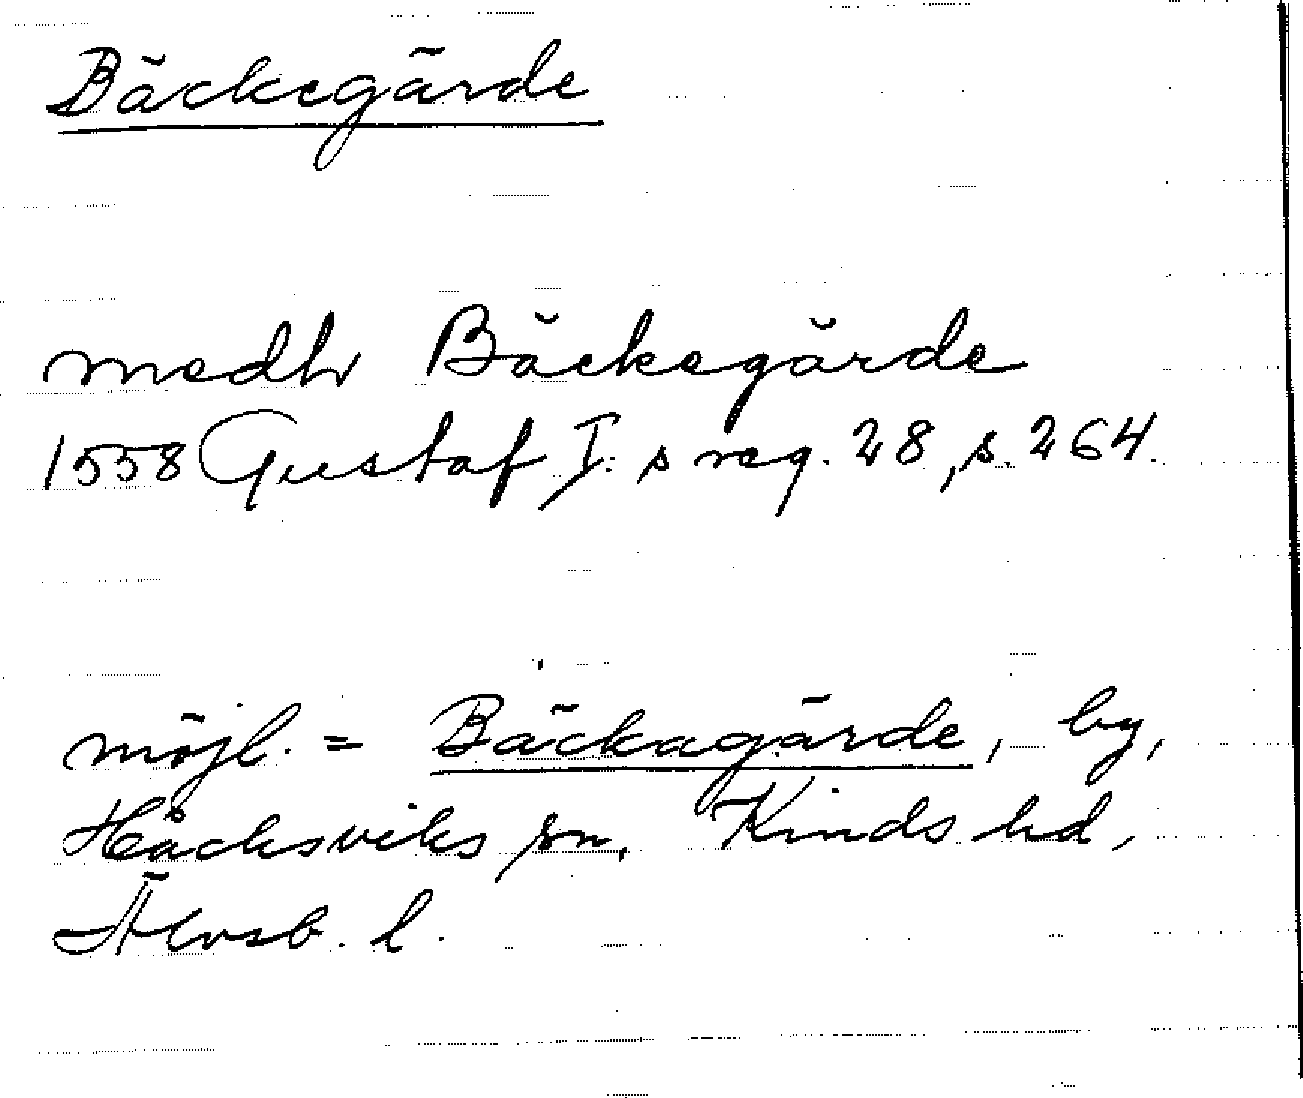 Bäckegärde
medh Bäckegärde
1558 Gustaf I:s reg. 28, s. 264.
möjl. = Bäckagärde, by,
Håcksviks sn, Kinds hd,
Älvsb. l.